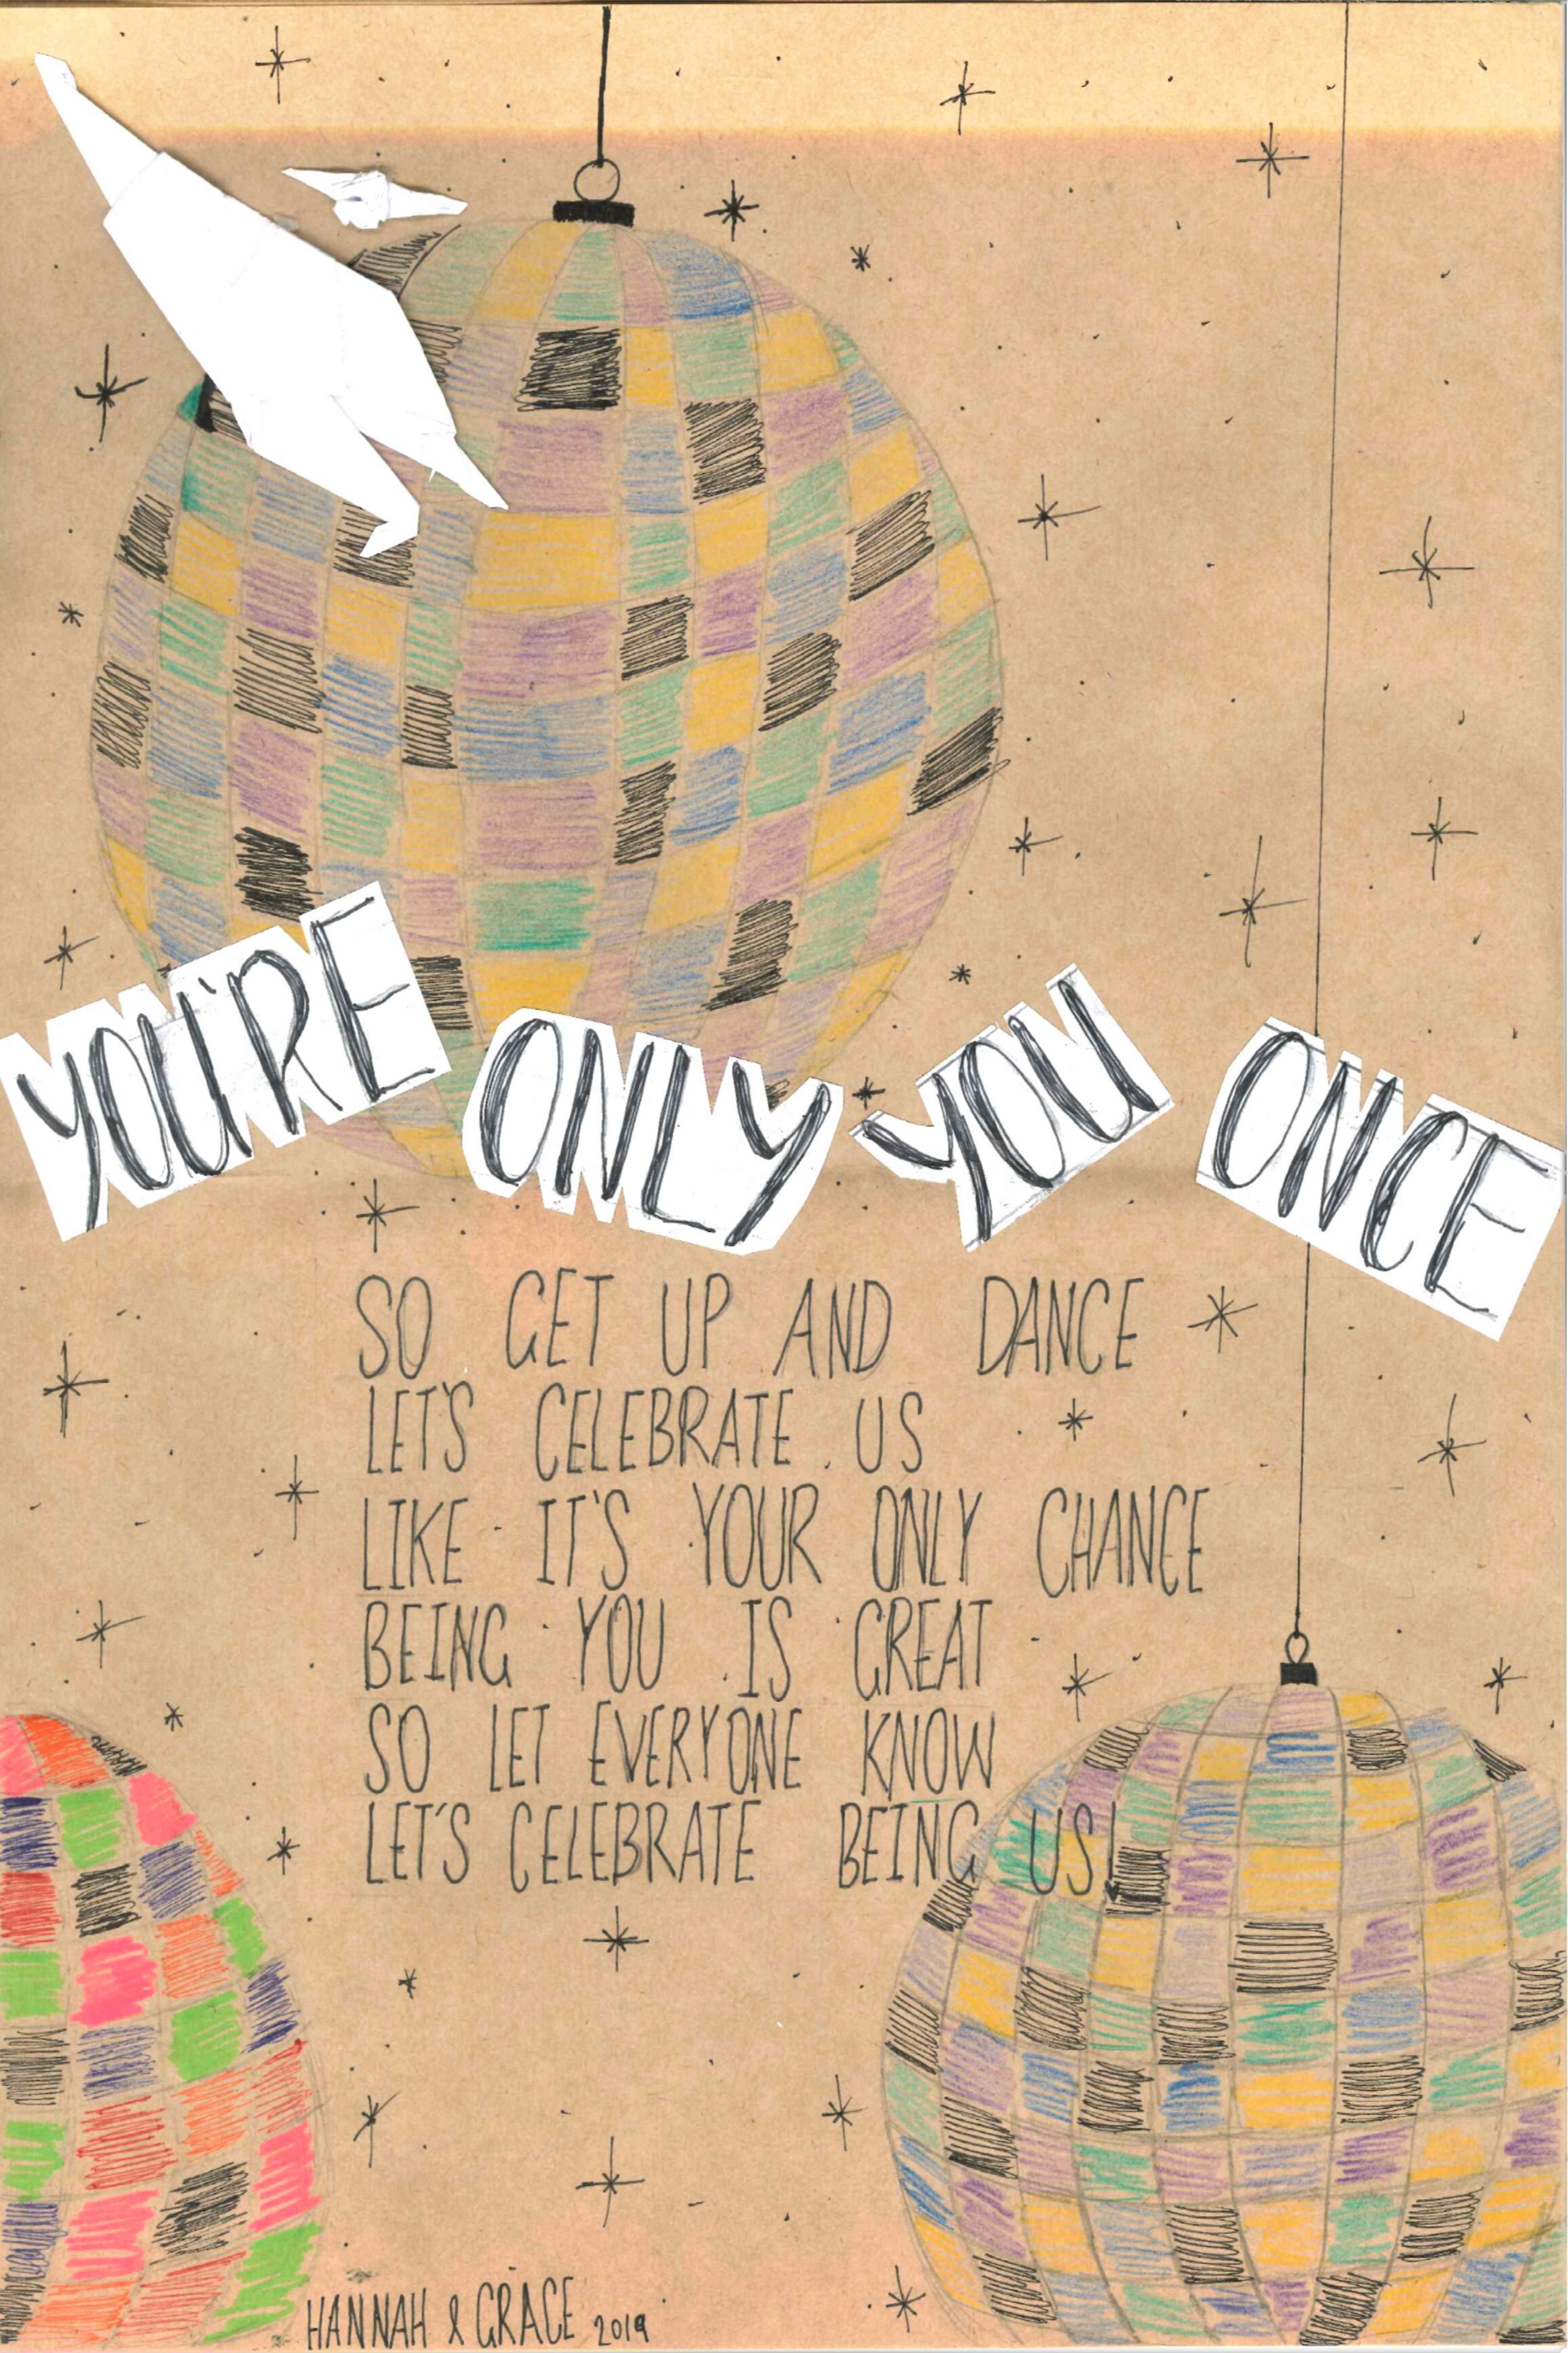 YOU'RE ONLY YOU ONCE
SO GET UP AND DANCE
LET'S CELEBRATE US
LIKE IT'S YOUR ONLY CHANCE
BEING YOU IS GREAT
SO LET EVERYONE KNOW
LET'S CELEBRATE BEING US!
HANNAH & GRACE 2019